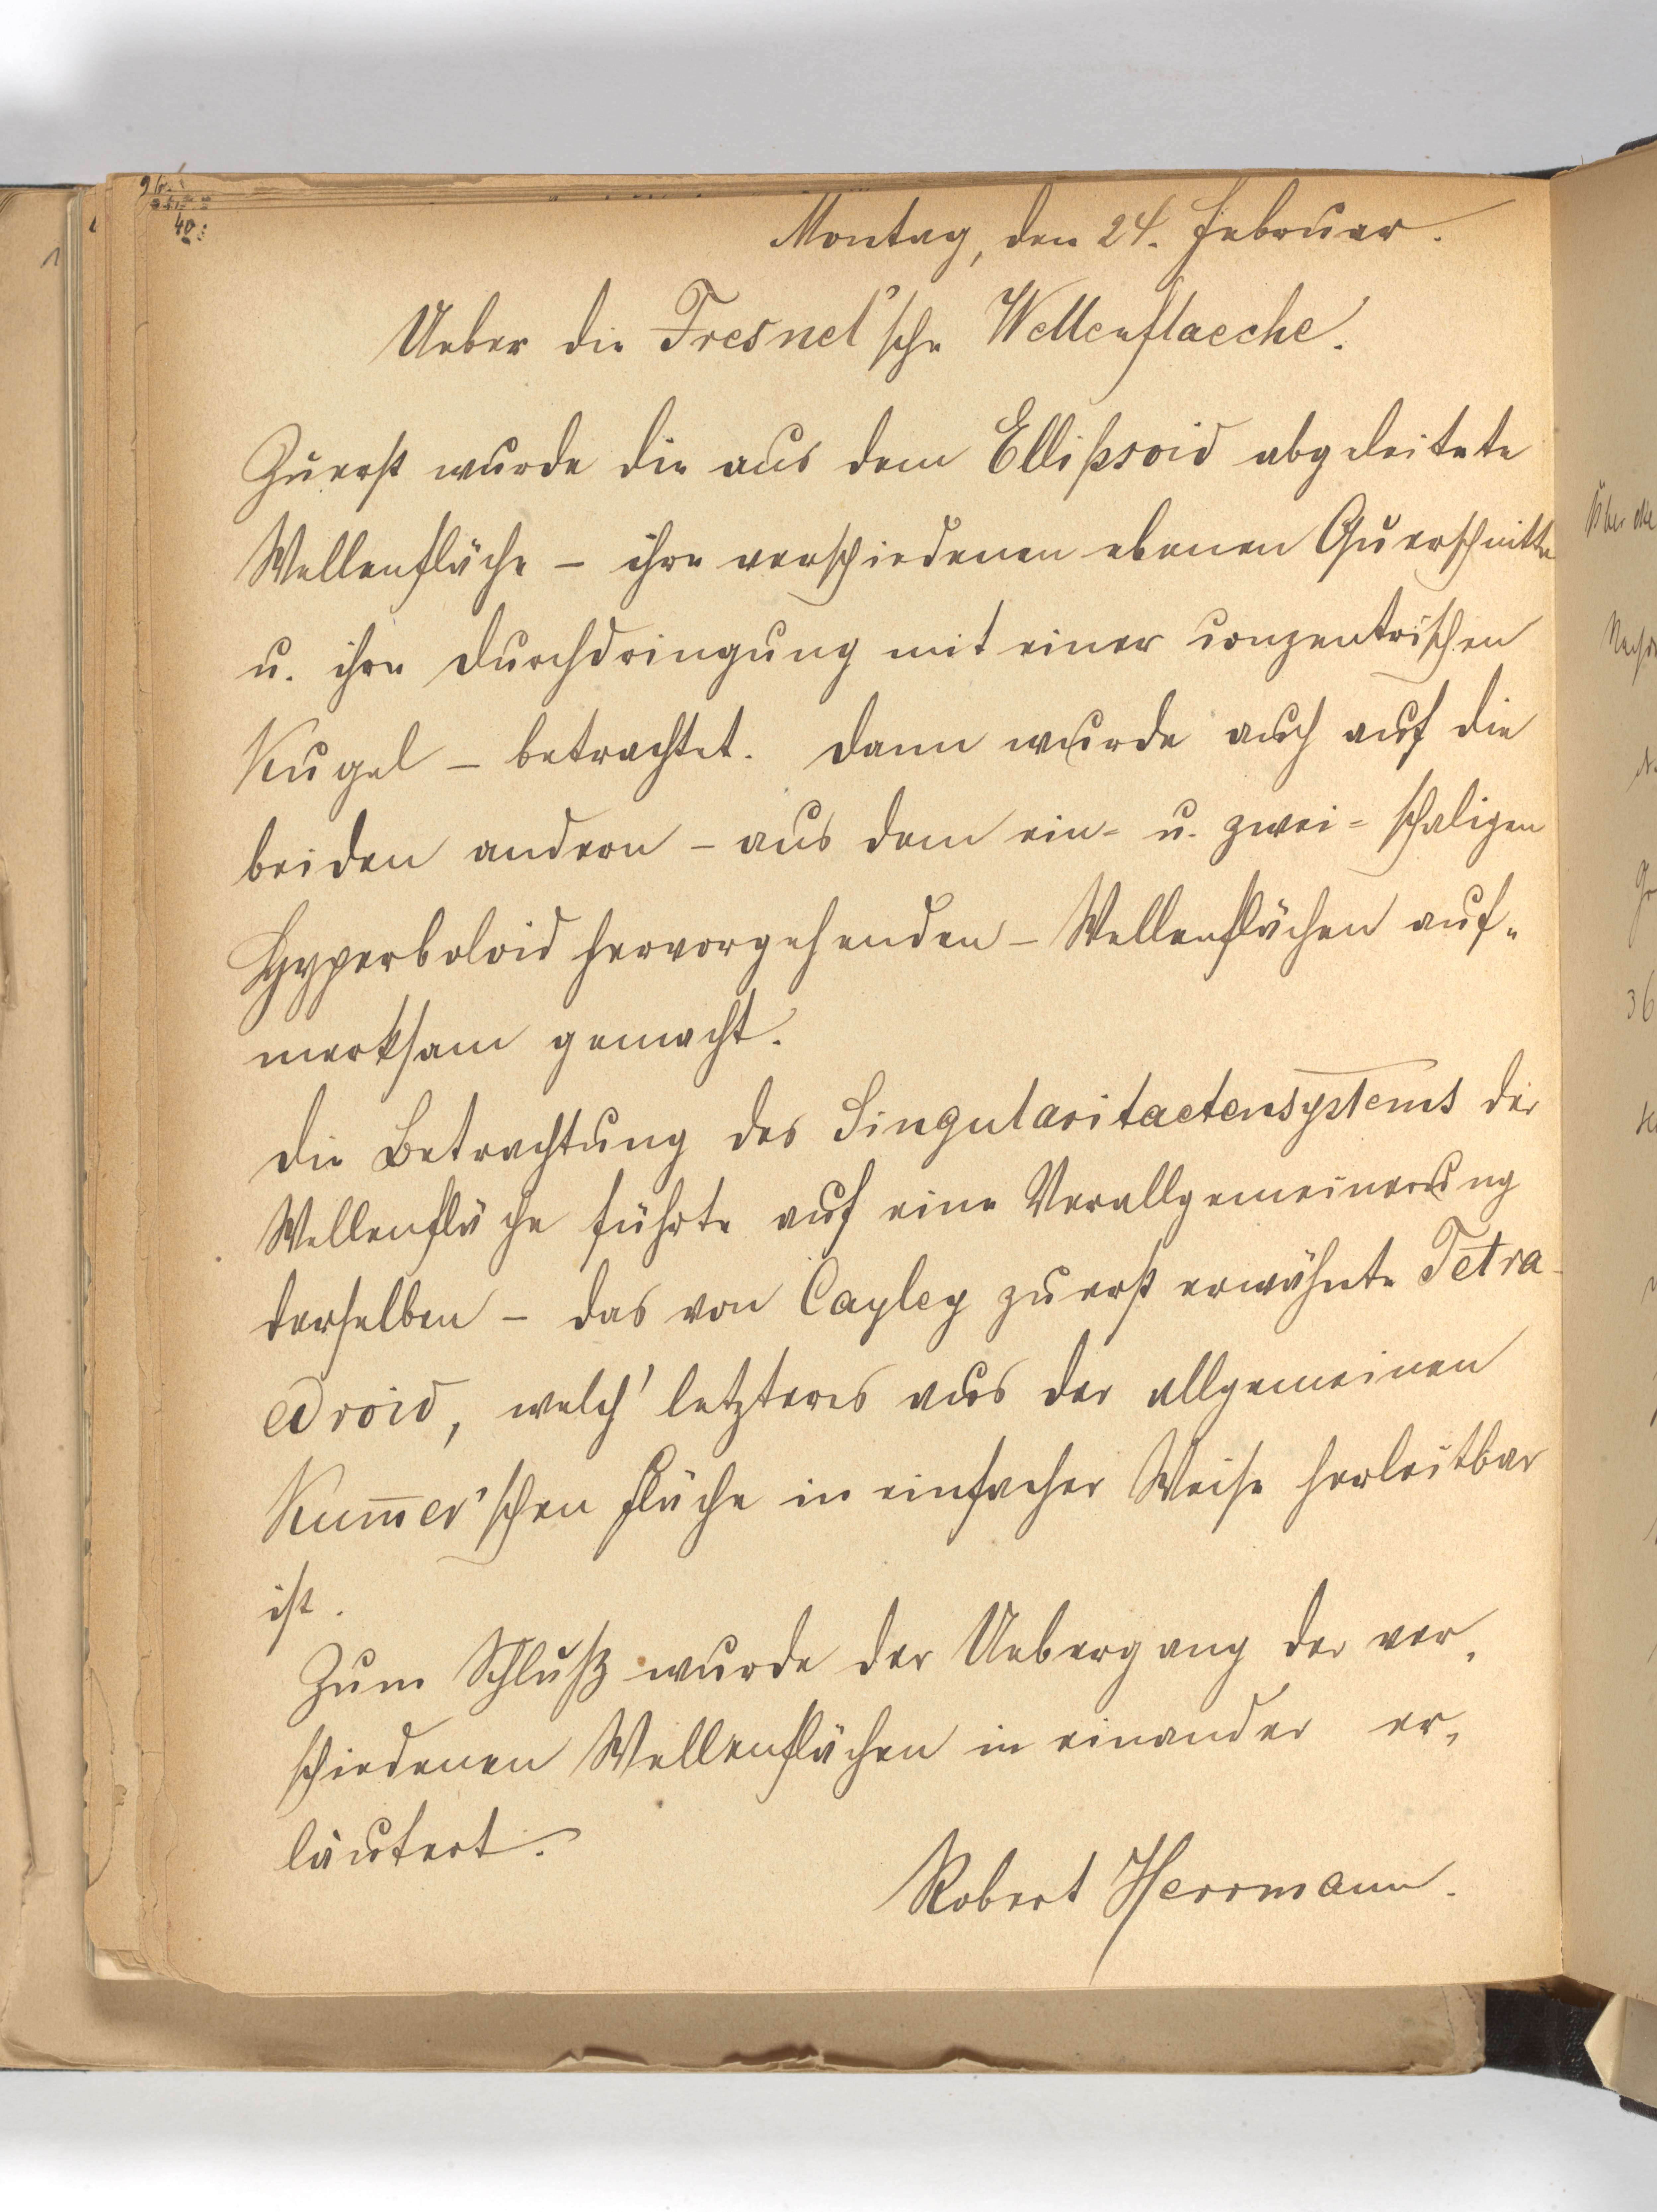 40
Montag, den 24. Februar.
Ueber die Fresnel'sche Wellenflaeche.
Zuerst wurde die aus dem Ellipsoid abgeleitete
Wellenfläche – ihre verschiedenen ebenen Querschnitte
u. ihre Durchdringung mit einer conzentrischen
Kugel – betrachtet. Dann wurde auch auf die
beiden andern – aus dem ein- u. zwei-schaligen
Hyperboloid hervorgehenden – Wellenflächen auf-
merksam gemacht.
Die Betrachtung des Singularitaetensystems der
Wellenfläche führte auf eine Verallgemeinerung
derselben – das von Cayley zuerst erwähnte Tetra-
edroid, welch' letzteres aus der allgemeinen
Kum̅er'schen Fläche in einfacher Weise herleitbar
ist.
Zum Schluß wurde der Uebergang der ver-
schiedenen Wellenflächen in einander er-
läutert.
Robert Herrmann.
Über die
36